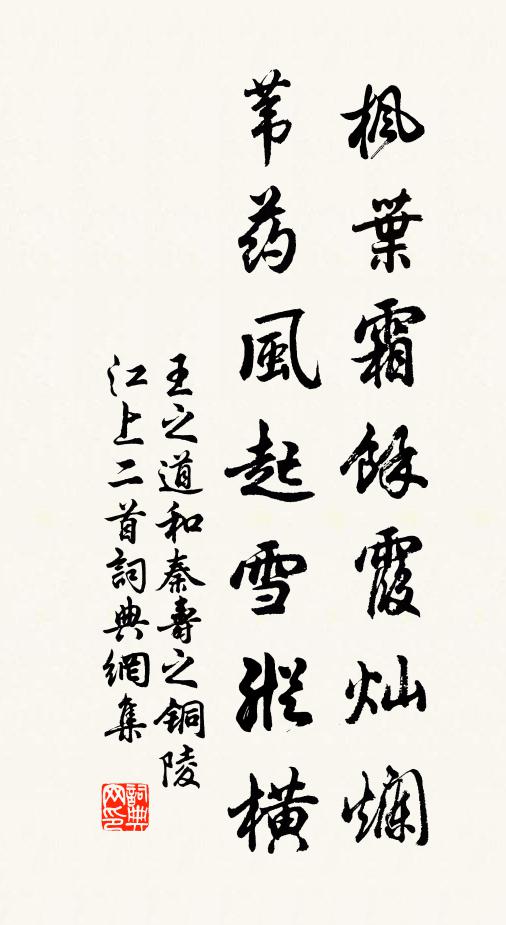 枫葉霜餘霞灿爛
苇药風起雪縱橫
王之道和秦壽之銅陵
江上二首詞典網集
詞典网印